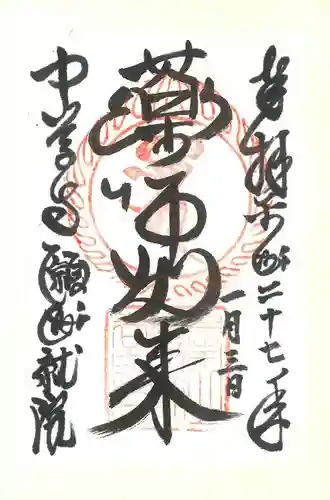 奉拝 平成二十七年
一月三日
薬師如来
中学山 願成就院